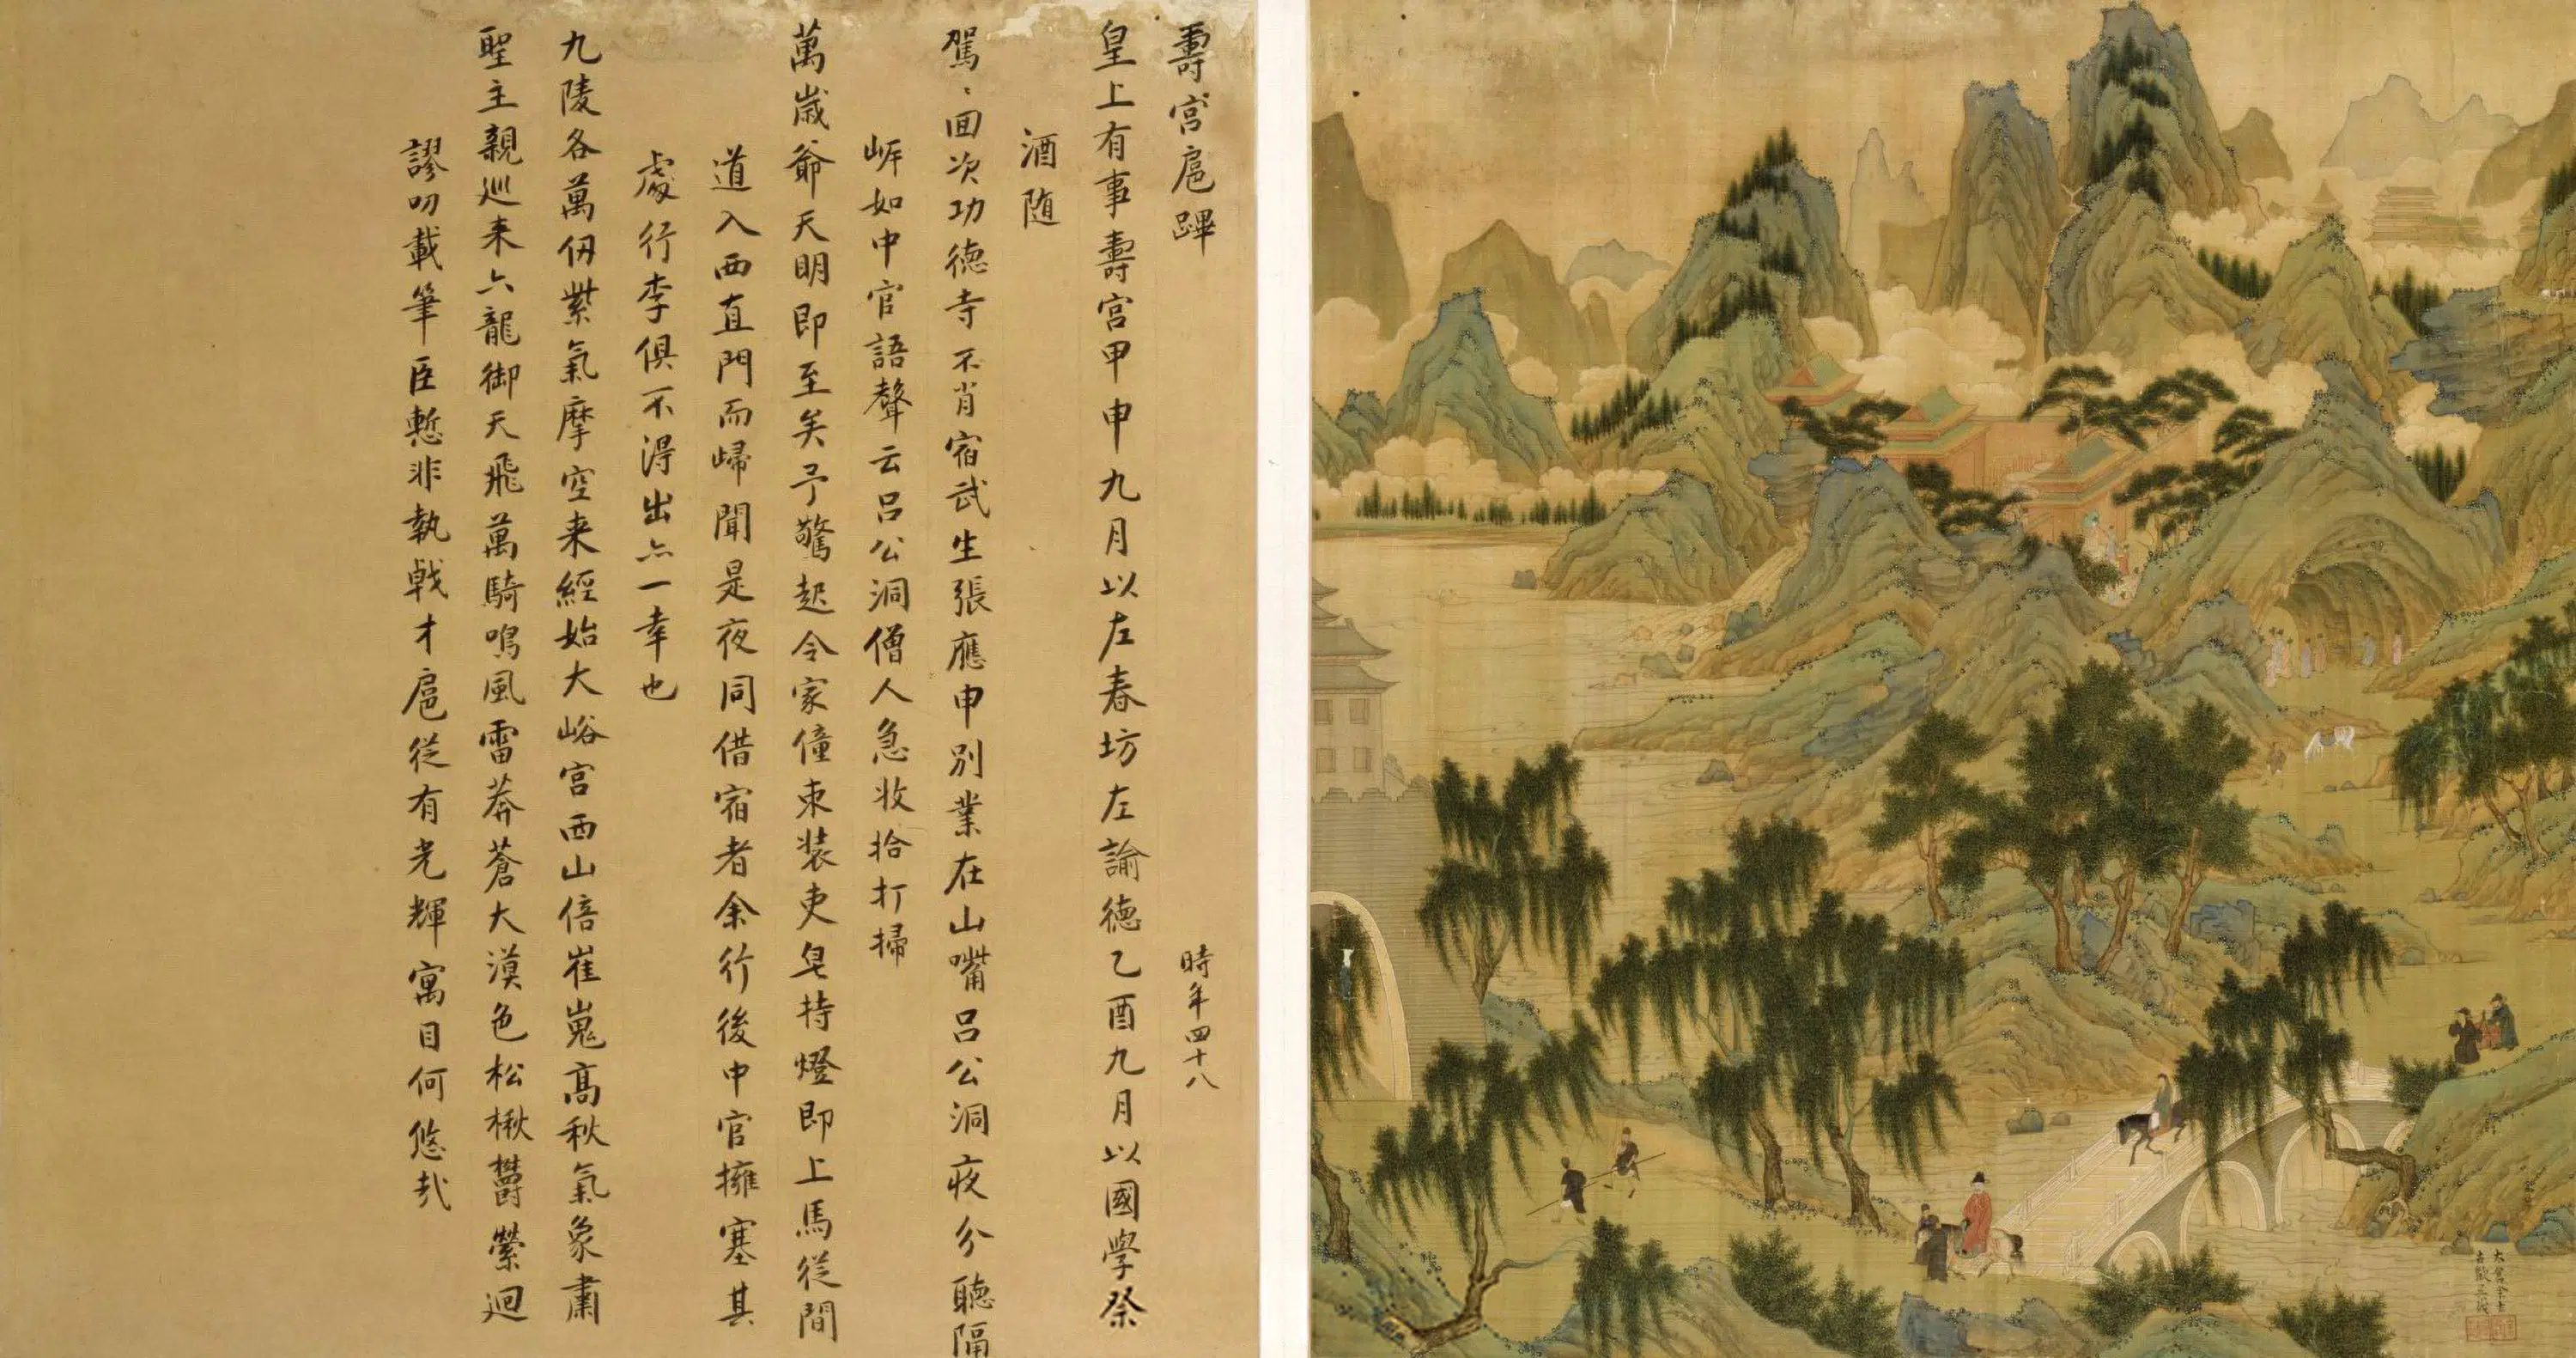 壽宮扈蹕 時年四十八
皇上有事壽宮甲申九月以左春坊左諭德乙酉九月以國學祭
酒随
駕〻回次功德寺不肖宿武生張應申別業在山嘴吕公洞夜分聽隔
岸如中官語聲云吕公洞僧人急收拾打掃
萬歲爺天明即至矣予驚起令家僮束装吏皂持燈即上馬從間
道入西直門而歸聞是夜同借宿者余行後中官擁塞其
處行李俱不得出亦一幸也
九陵各萬仞紫氣摩空来經始大峪宮西山倍崔嵬高秋氣象肅
聖主親巡来六龍御天飛萬騎鳴風雷莽蒼大漠色松楸鬱縈迴
謬叨載筆臣慙非執戟才扈從有光輝寓目何悠哉